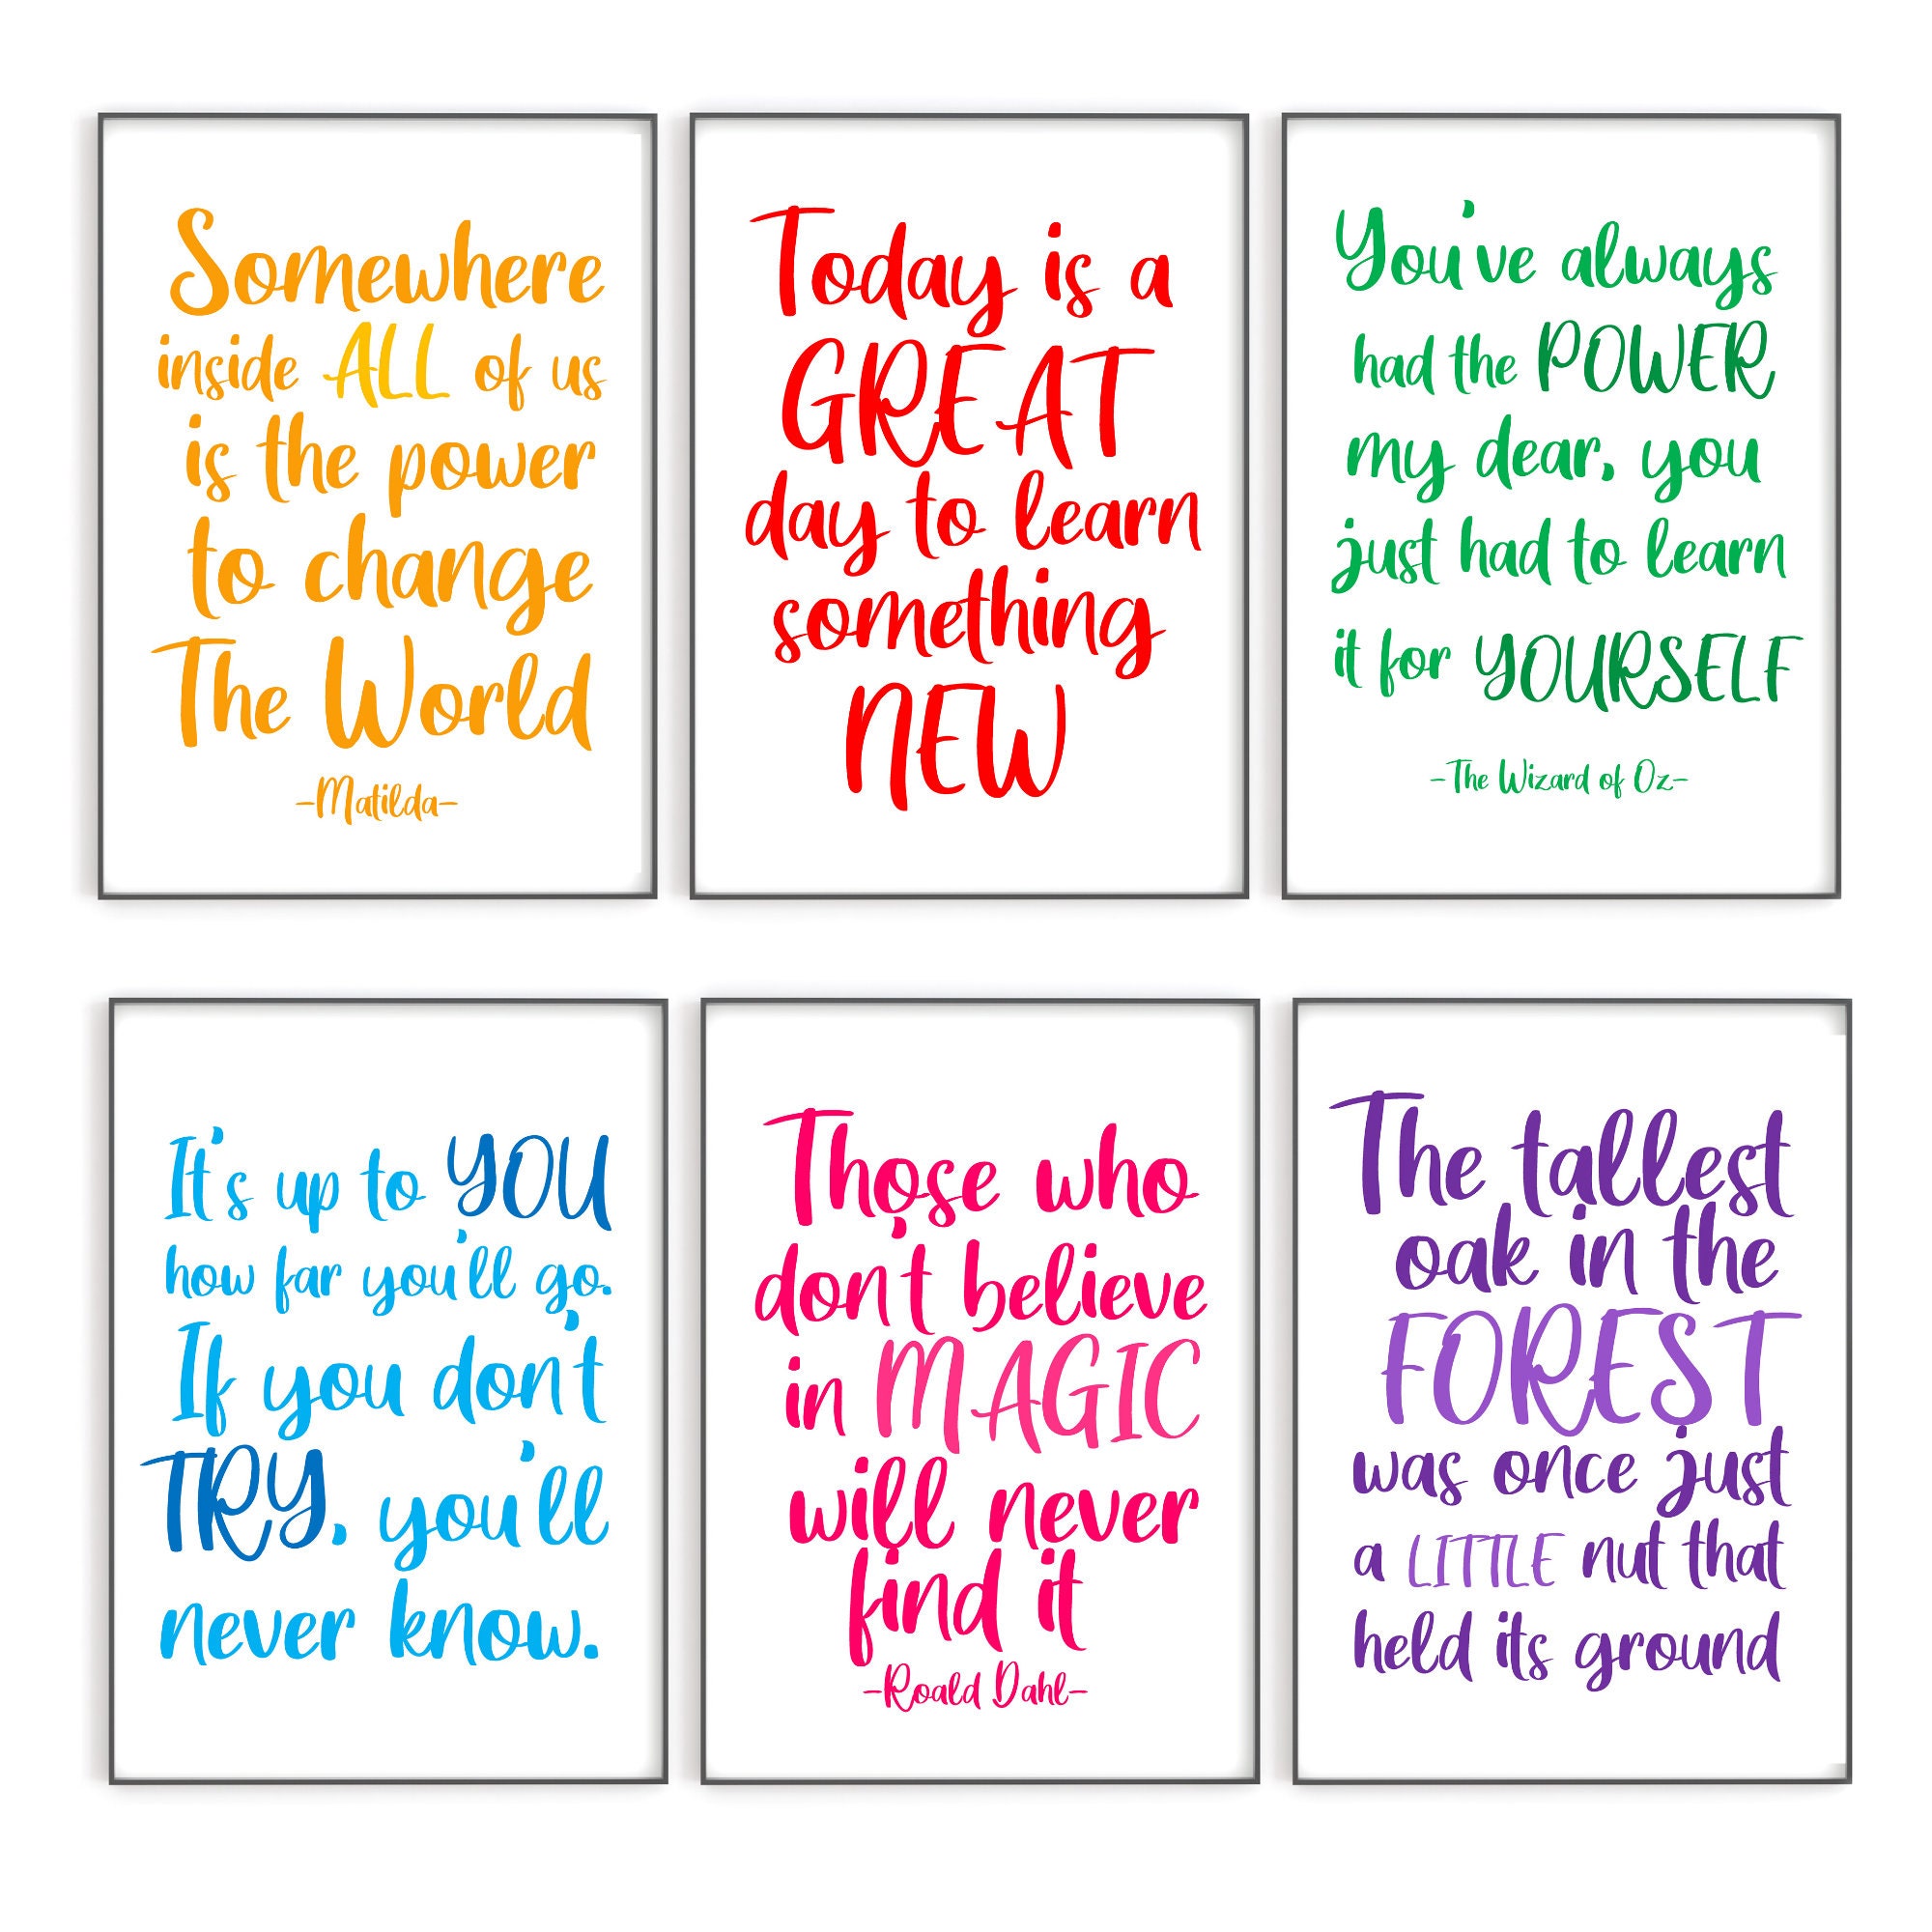 Somewhere
inside ALL of us
is the power
to change
The World
-Matilda-
Today is a
GREAT
day to learn
something
NEW
You've always
had the POWER
my dear, you
just had to learn
it for YOURSELF
-The Wizard of Oz-
It's up to YOU
how far you'll go.
If you don't
TRY, you'll
never know.
Those who
don't believe
in MAGIC
will never
find it
-Roald Dahl-
The tallest
oak in the
FOREST
was once just
a LITTLE nut that
held its ground